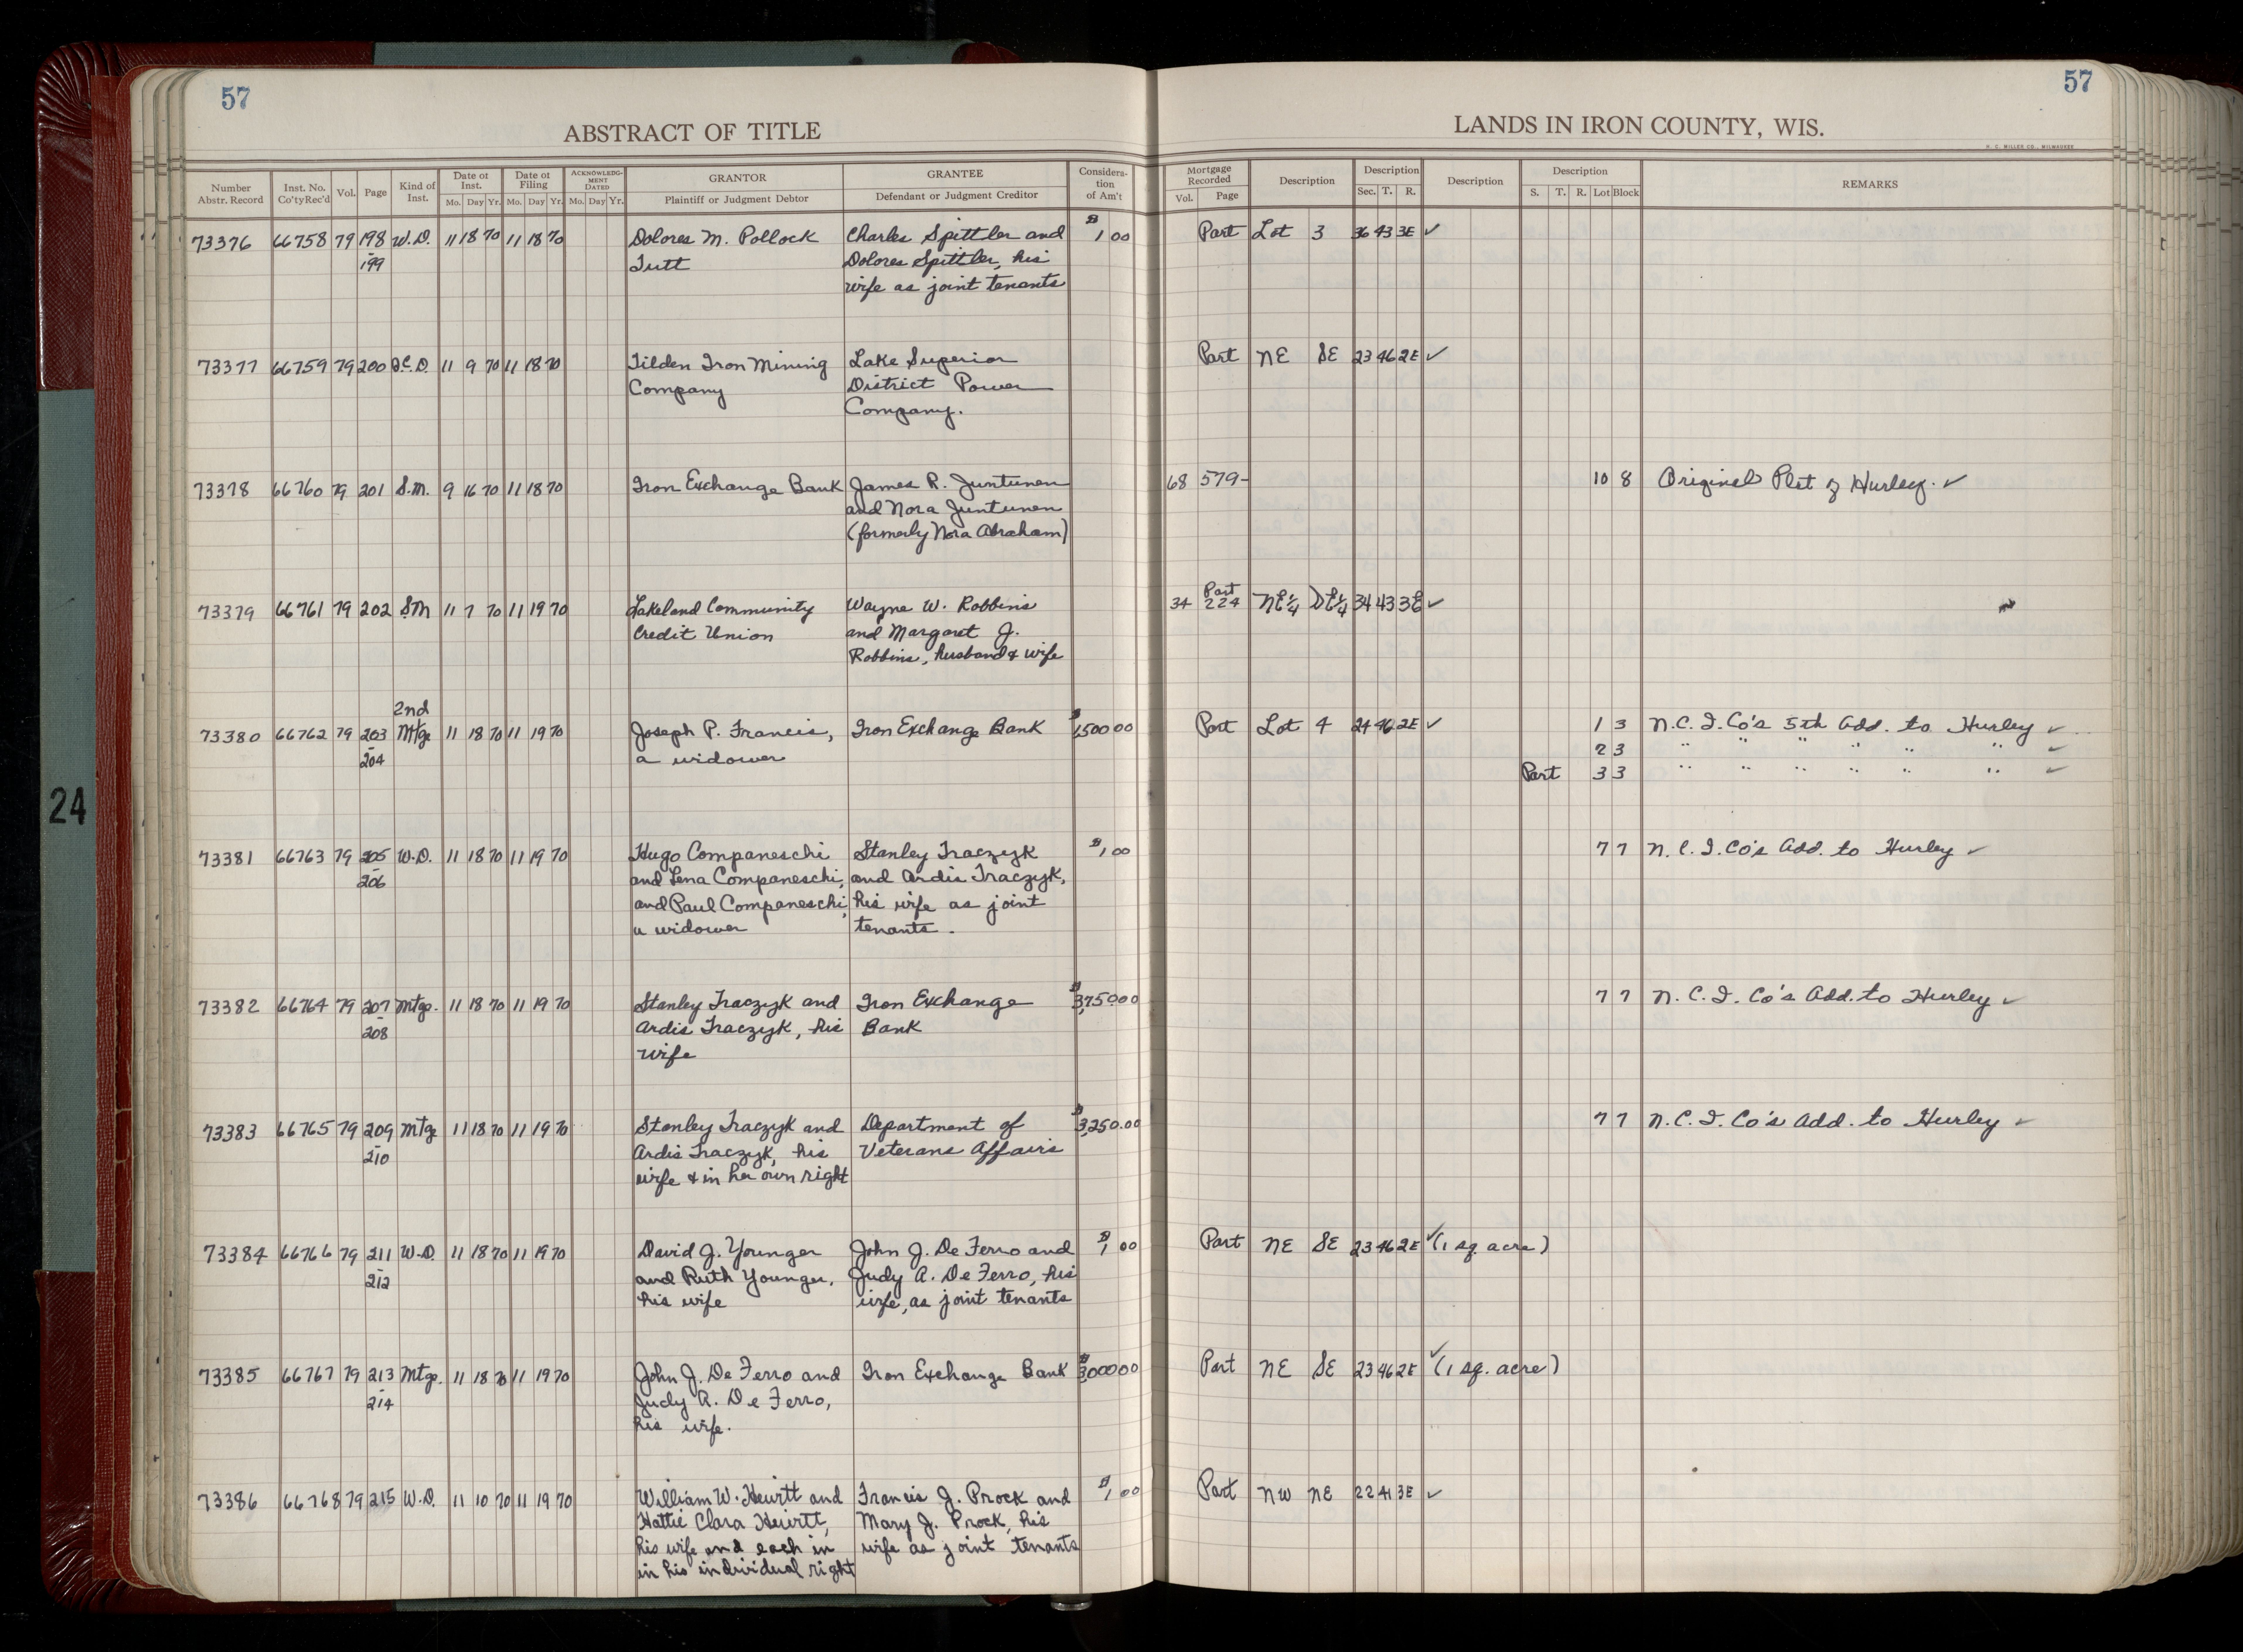 57
57
ABSTRACT OF TITLE
LANDS IN IRON COUNTY, WIS.
H. C. MILLER CO., MILWAUKEE
Number Abstr. Record
Inst. No. Co'ty Rec'd
Vol.
Page
Kind of Inst.
Date of Inst.
Mo. Day Yr.
Date of Filing
Mo. Day Yr.
ACKNOWLEDGMENT DATED
Mo. Day Yr.
GRANTOR
Plaintiff or Judgment Debtor
GRANTEE
Defendant or Judgment Creditor
Consideration of Am't
Mortgage Recorded
Vol. Page
Description
Description
Sec. T. R.
Description
Description
S. T. R. Lot Block
REMARKS
73376 66758 79 198 W.D. 11 18 70 11 18 70 Dolores M. Pollock Charles Spittler and $1 00 Part Lot 3 36 43 3E ✓
- 199 Tutt Dolores Spittler, his
wife as joint tenants
73377 66759 79 200 Q.C.D. 11 9 70 11 18 70 Tilden Iron Mining Lake Superior Part NE SE 23 46 2E ✓
Company District Power
Company.
73378 66760 79 201 S.M. 9 16 70 11 18 70 Iron Exchange Bank James R. Juntunen 68 579- 10 8 Original Plat of Hurley. ✓
and Nora Juntunen
(formerly Nora Abraham)
Part
73379 66761 79 202 S.M 11 7 70 11 19 70 Lakeland Community Wayne W. Robbins 34 224 NE¼ SE¼ 34 43 3E ✓
Credit Union and Margaret J.
Robbins, husband & wife
2nd
73380 66762 79 203 Mtge 11 18 70 11 19 70 Joseph P. Francis, Iron Exchange Bank $1,500 00 Part Lot 4 24 46 2E ✓ 1 3 N.C.I. Co's 5th Add. to Hurley ✓
- 204 a widower 2 3 " " " " " " ✓
Part 3 3 " " " " " " ✓
73381 66763 79 205 W.D. 11 18 70 11 19 70 Hugo Companeschi Stanley Traczyk $1,00 7 7 N.C.I. Co's Add. to Hurley ✓
- 206 and Lena Companeschi, and Ardis Traczyk,
and Paul Companeschi, his wife as joint
a widower tenants.
73382 66764 79 207 Mtge. 11 18 70 11 19 70 Stanley Traczyk and Iron Exchange $3,750 00 7 7 N.C.I. Co's Add. to Hurley ✓
- 208 Ardis Traczyk, his Bank
wife
73383 66765 79 209 Mtge 11 18 70 11 19 70 Stanley Traczyk and Department of $3,250.00 7 7 N.C.I. Co's Add. to Hurley ✓
- 210 Ardis Traczyk, his Veterans Affairs
wife & in her own right
73384 66766 79 211 W.D. 11 18 70 11 19 70 David J. Younger John J. De Ferro and $1 00 Part NE SE 23 46 2E ✓ (1 sq. acre)
- 212 and Ruth Younger, Judy A. De Ferro, his
his wife wife, as joint tenants
73385 66767 79 213 Mtge. 11 18 70 11 19 70 John J. De Ferro and Iron Exchange Bank $3,000 00 Part NE SE 23 46 2E ✓ (1 sq. acre)
- 214 Judy A. De Ferro,
his wife.
73386 66768 79 215 W.D. 11 10 70 11 19 70 William W. Hewitt and Francis J. Prock and $1,00 Part NW NE 22 41 3E ✓
Hattie Clara Hewitt, Mary J. Prock, his
his wife and each in wife as joint tenants
in his individual right
24